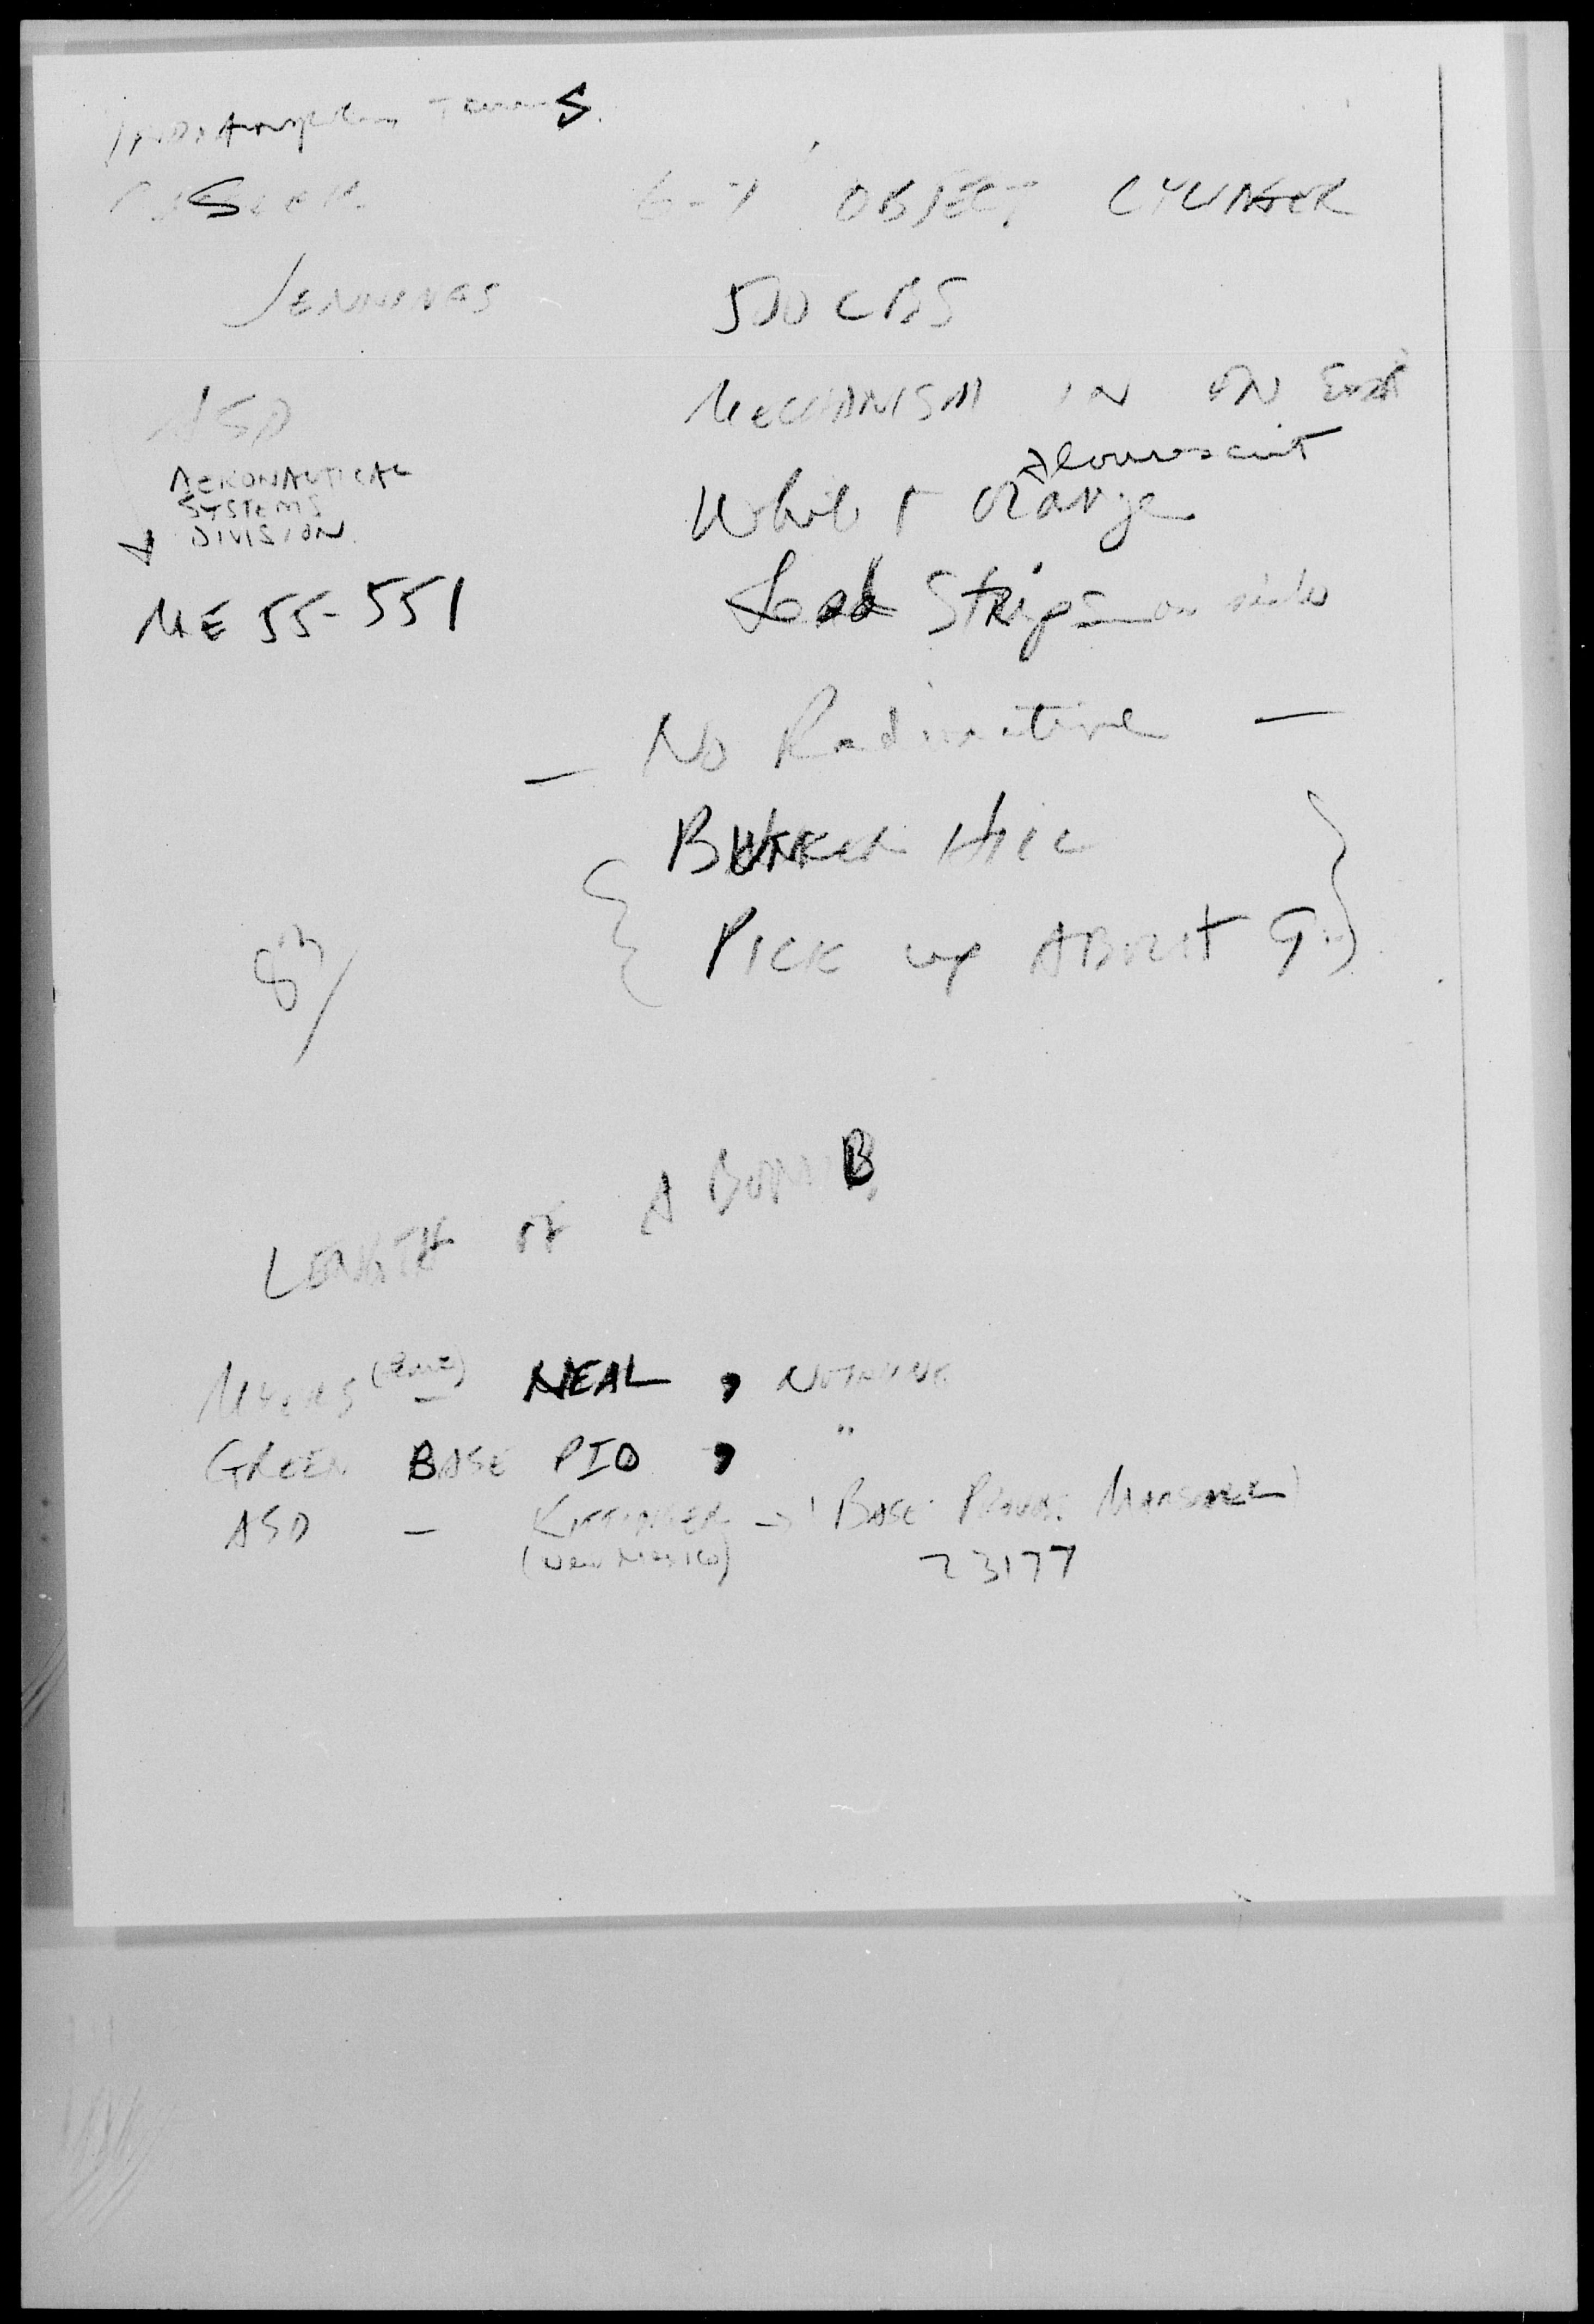 Indianapolis Times
6-7 OBJECT CYLINDER
JENNINGS 500 LBS
ASD MECHANISM IN ON End
AERONAUTICAL
SYSTEMS
DIVISION
flourescent
White + Orange
ME 55-551 Lead Strips on side
— No Radioactive —
BUNKER HILL
PICK up ABOUT 9
LENGTH OF A BOMB
MYERS — NEAL, NOTHING
GREEN BASE PIO, "
ASD — KITTINGER → BASE Provost MARSHALL
(New Mexico) 23177